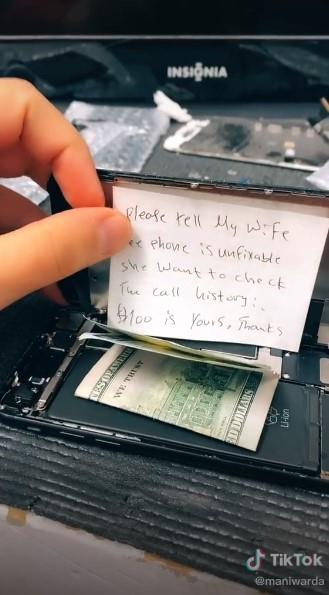 INSIGNIA
Please tell My Wife
phone is unfixable
she want to check
The call history:.
$100 is Yours, Thanks
WE TRUST
Li-ion
TikTok
@maniwarda